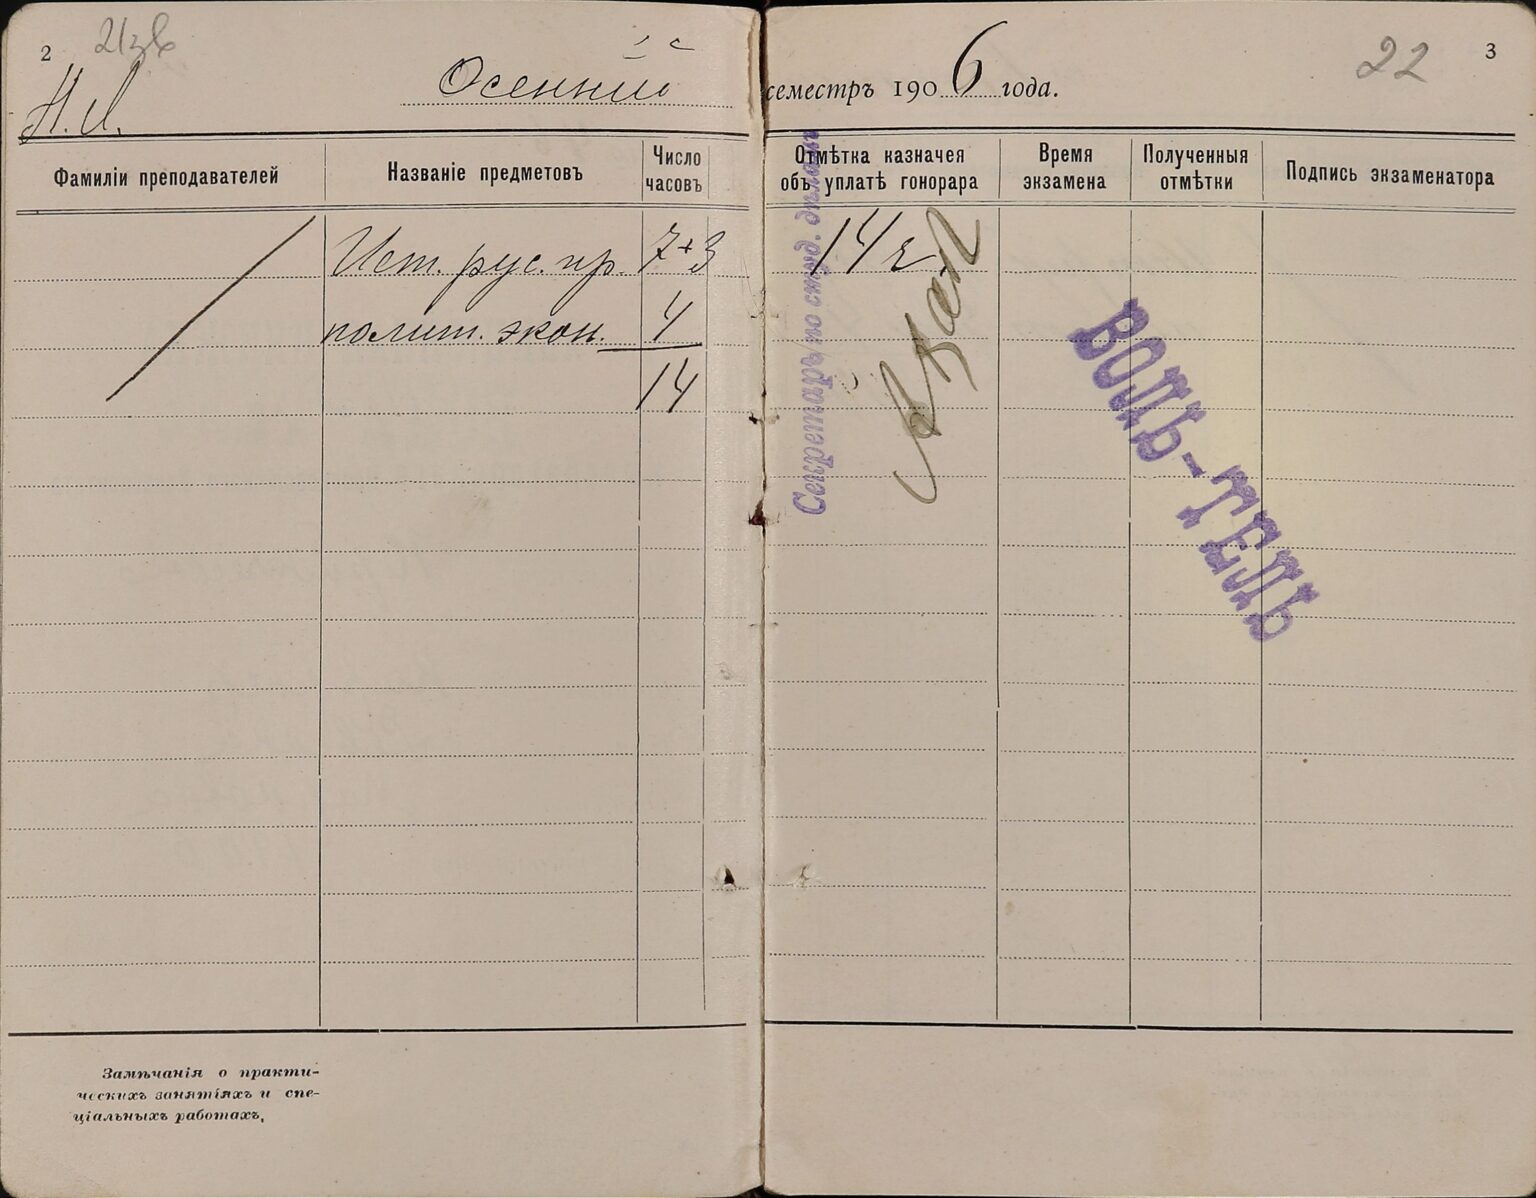 2
Осенній
семестръ 1906 года.
22
3
Фамиліи преподавателей
Названіе предметовъ
Число
часовъ
Отмѣтка казначея
объ уплатѣ гонорара
Время
экзамена
Полученныя
отмѣтки
Подпись экзаменатора
Ист. рус. пр. 7+3
14
полит. экон. 4
14
Секретарь по студ. дѣламъ
ВОЛЬ-ТЕЛЬ
Замѣчанія о практи-
ческихъ занятіяхъ и спе-
ціальныхъ работахъ,